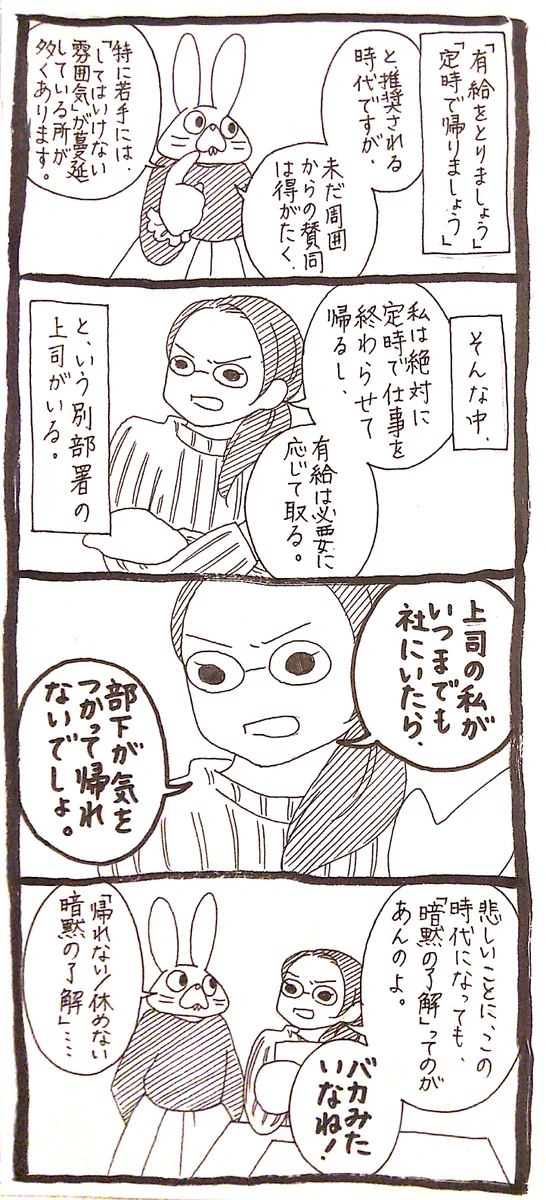 「有給をとりましょう」
「定時で帰りましょう」
と推奨される
時代ですが、
未だ周囲
からの賛同
は得がたく、
特に若手には、
「してはいけない
雰囲気」が蔓延
している所が
多くあります。
そんな中、
私は絶対に
定時で仕事を
終わらせて
帰るし、
有給は必要に
応じて取る。
と、いう別部署の
上司がいる。
上司の私が
いつまでも
社にいたら、
部下が気を
つかって帰れ
ないでしょ。
悲しいことに、この
時代になっても、
「暗黙の了解」ってのが
あんのよ。
バカみた
いなね!
「帰れない/休めない
暗黙の了解」…